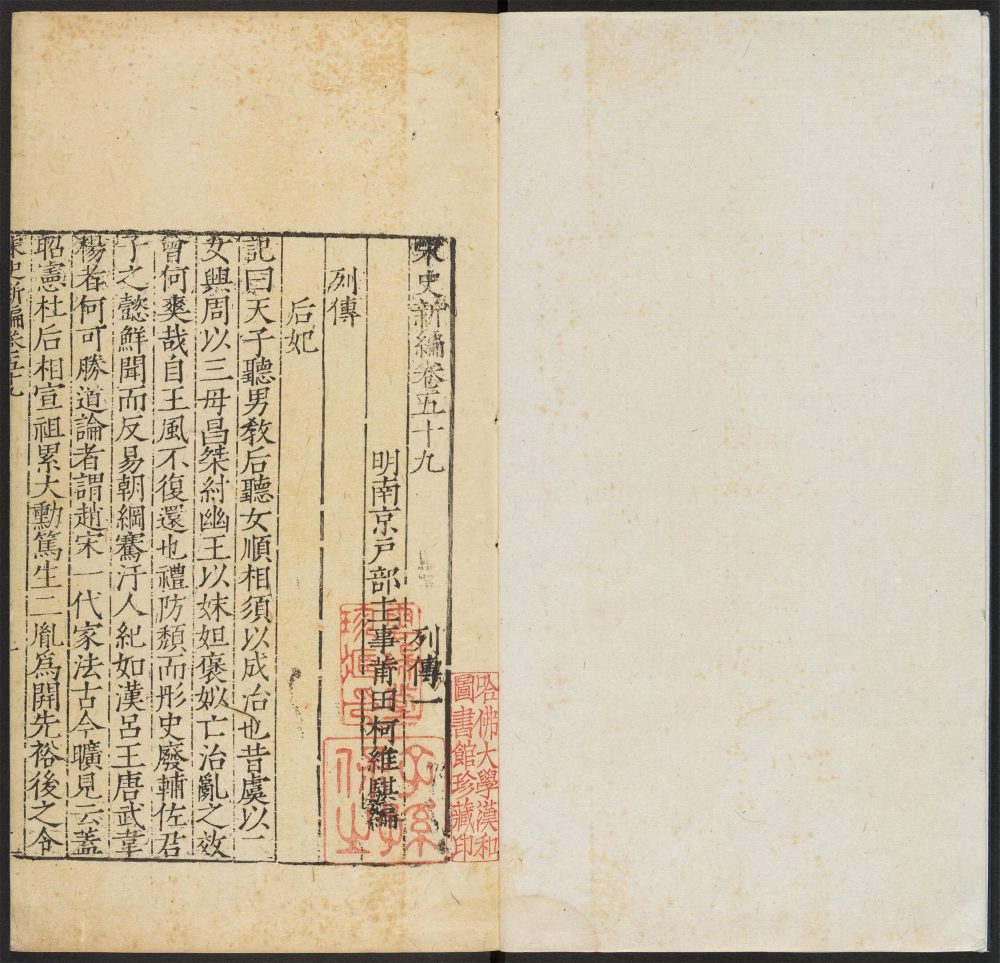 宋史新編卷五十九
列傳一
明南京戶部主事莆田柯維騏編
列傳
后妃
記曰天子聽男敎后聽女順相須以成治也昔虞以二
女興周以三母昌桀紂幽王以妺妲褒姒亡治亂之效
曾何爽哉自王風不復還也禮防頹而彤史廢輔佐君
子之懿鮮聞而反易朝綱騫汙人紀如漢呂王唐武韋
楊者何可勝道論者謂趙宋一代家法古今曠見云蓋
昭憲杜后相宣祖累大勳篤生二胤爲開先裕後之令
宋史新編卷五十九
哈佛大學漢和
圖書館珍藏印